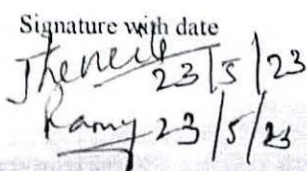 Signature with date
23/5/23
Ramy 23/5/23